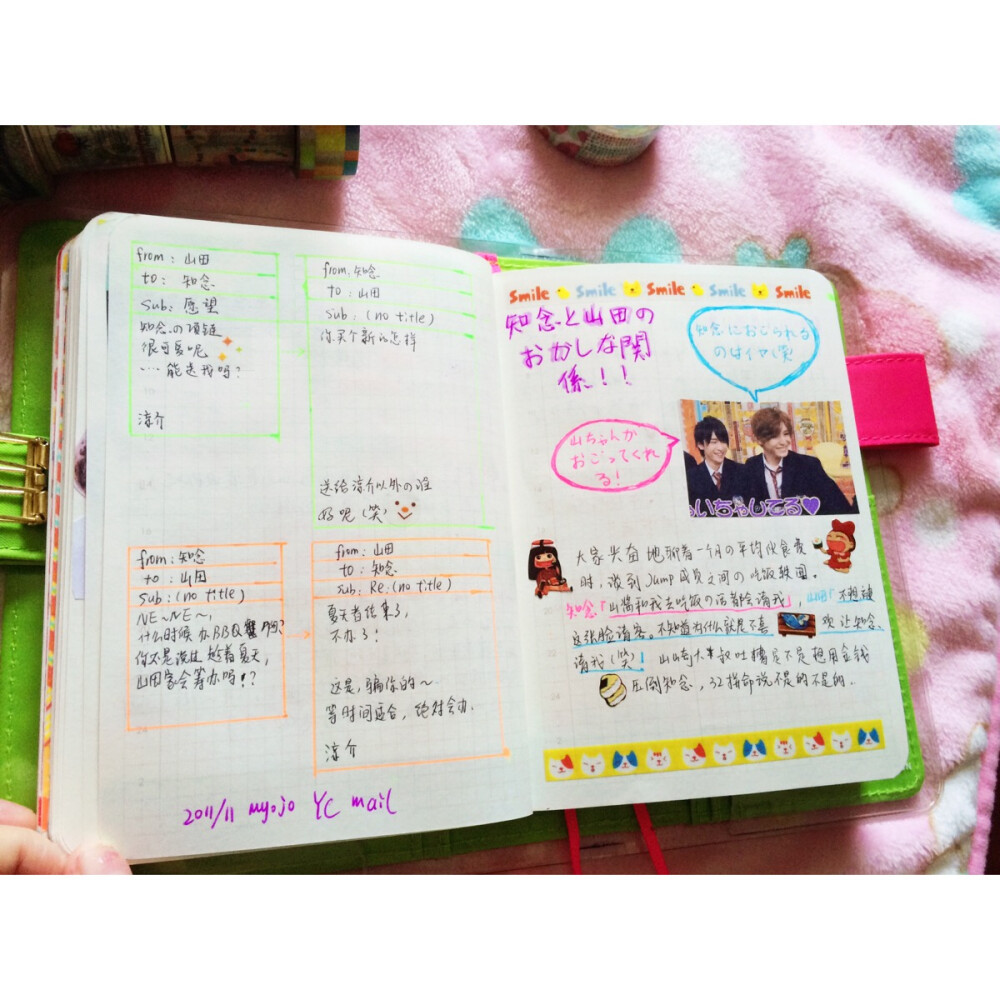 from: 山田
to: 知念
sub: 愿望
知念の項链
很可爱呢
… 能送我吗?
涼介
from: 知念
to: 山田
sub: (no title)
你买个新的怎样
送给涼介以外の谁
好呢(笑)
from: 知念
to: 山田
sub: (no title)
NE~NE~,
什么时候办BBQ
你还是说过趁着夏天,
山田家会筹办吗!?
from: 山田
to: 知念
sub: Re: (no title)
夏天都结束了,
不办了!
这是,骗你的~
等时间适合,绝对会办.
涼介
2011/11 myojo YC mail
Smile Smile Smile Smile Smile
知念と山田の
おかしな関
係!!
知念におごられる
のはイヤ(笑)
山ちゃんが
おごってくれ
る!
いちゃしてる♥
大家兴奋地聊着一个月の平均伙食费
时,谈到Jump成员之间の吃饭
知念「山酱和我去吃饭の话都会请我」,山田「不想被
这张脸请客。不知道为什么就是不喜
欢让知念
请我(笑)」山崎大叔吐槽是不是想用金钱
压倒知念,32拼命说不是的不是的.